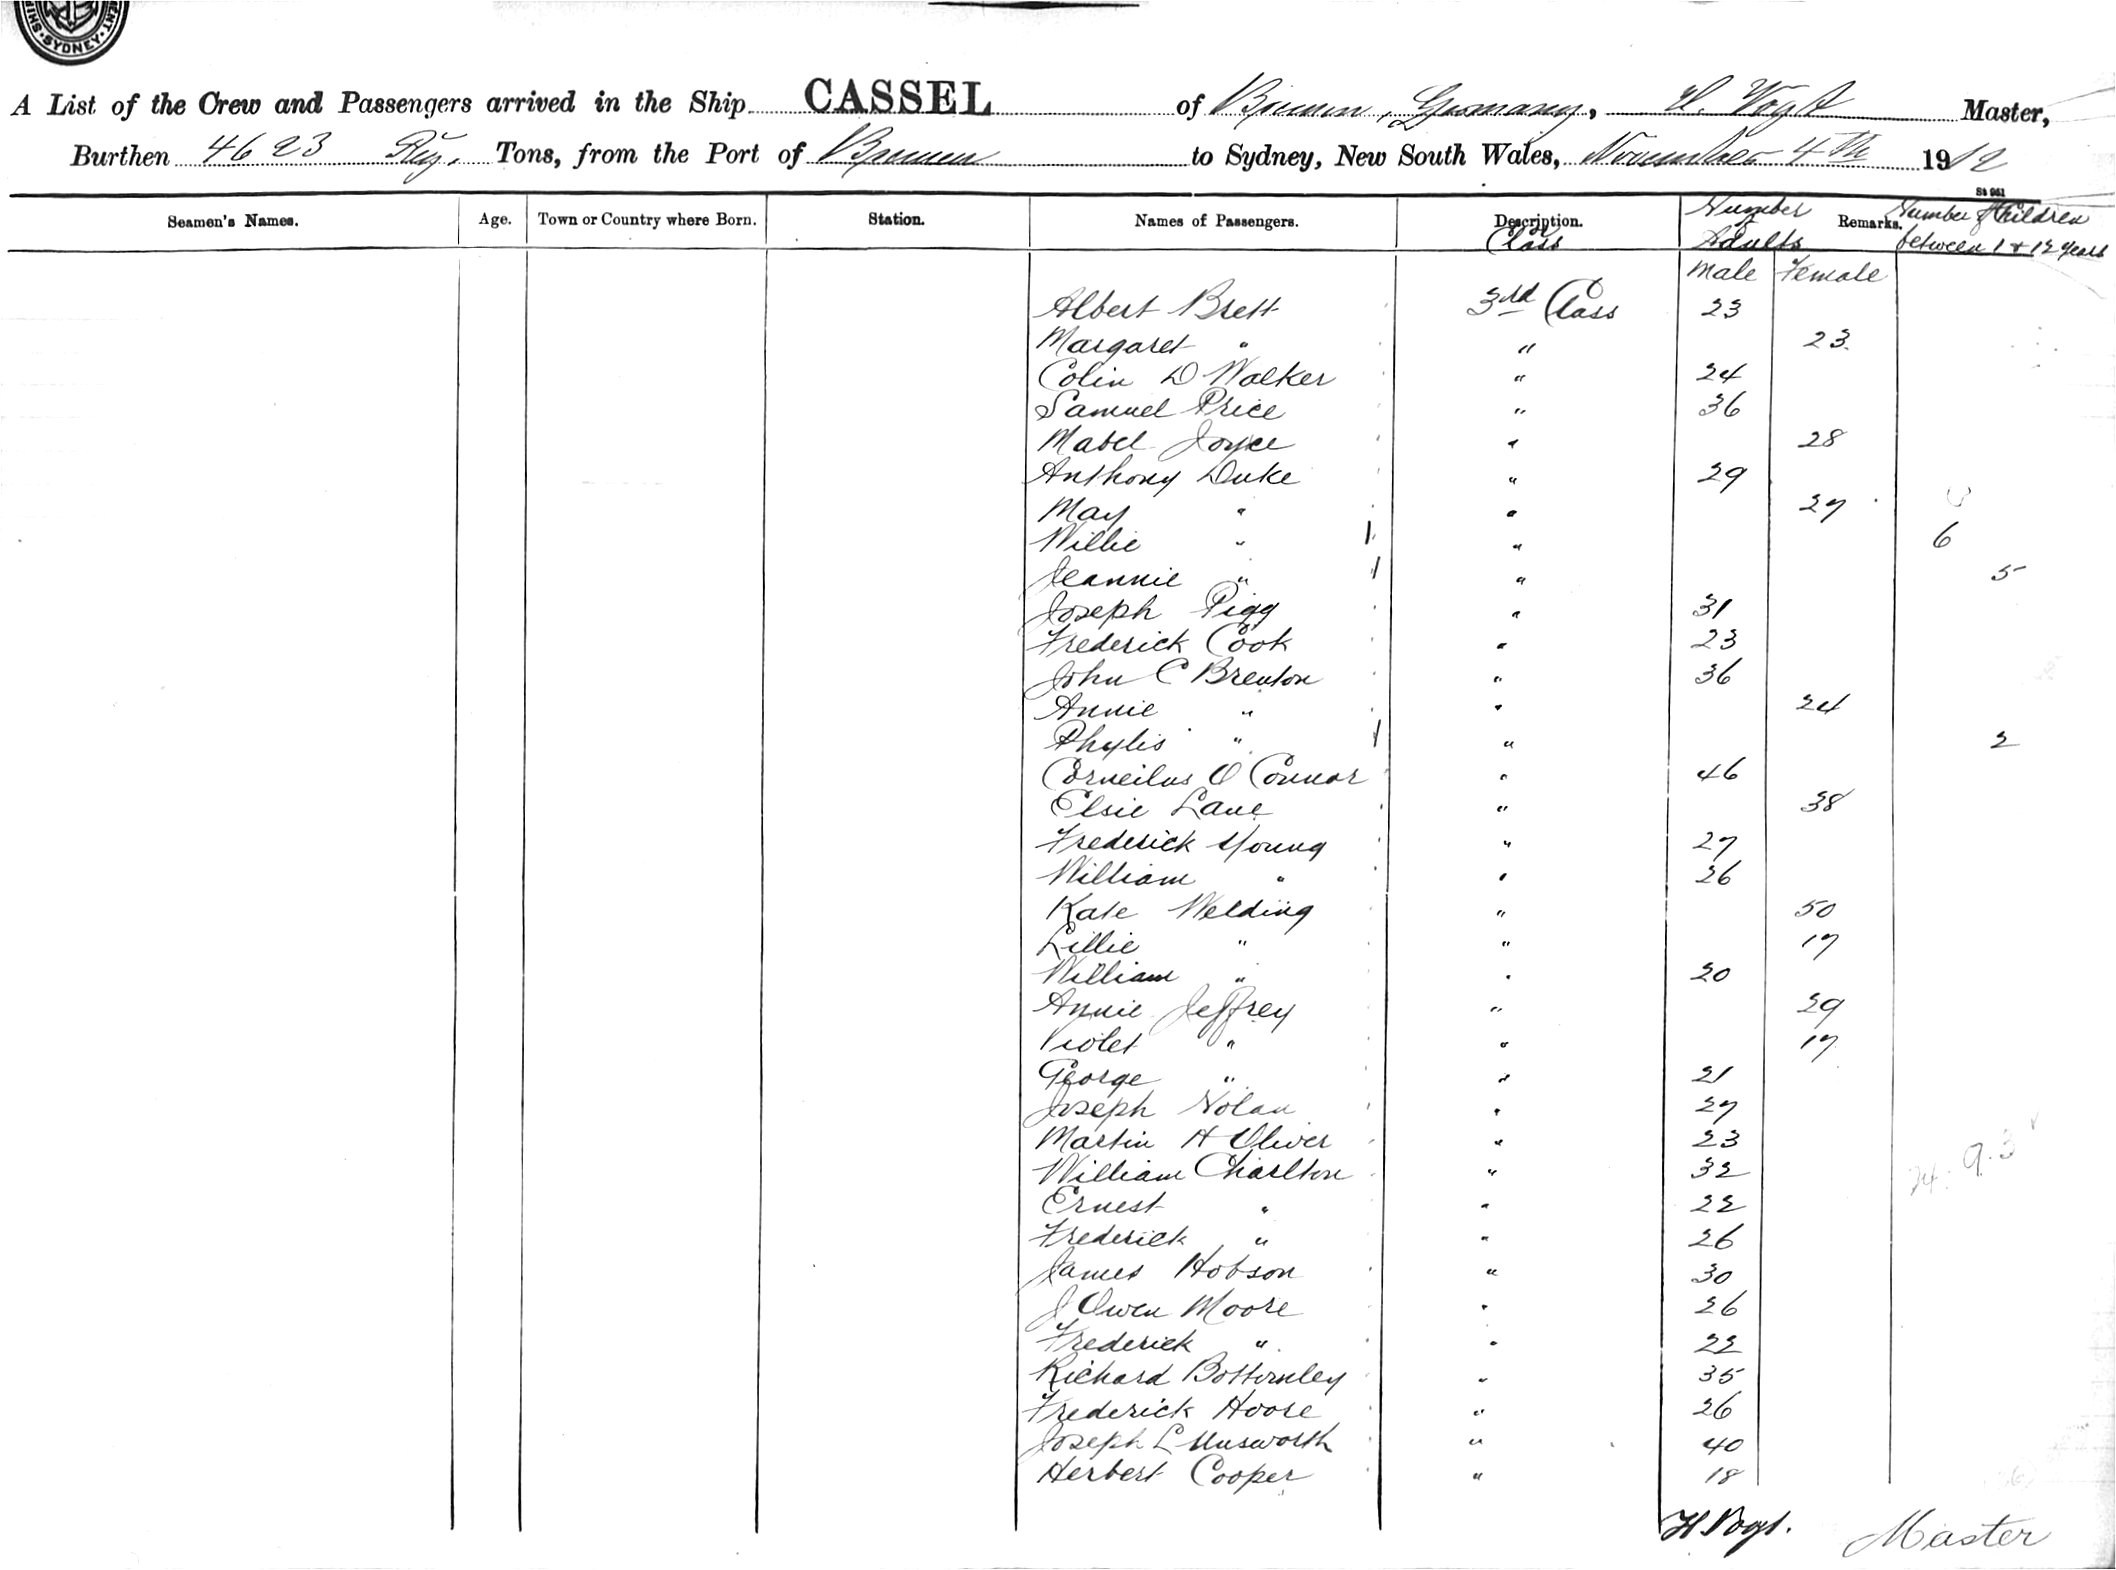 SYDNEY
A List of the Crew and Passengers arrived in the Ship CASSEL of Bremen, Germany, H. Vogt Master,
Burthen 4623 Reg. Tons, from the Port of Bremen to Sydney, New South Wales, November 4th 1912
St 961
Seamen's Names. Age. Town or Country where Born. Station. Names of Passengers. Description. Class Number Adults Remarks. Number of Children between 1 & 12 years
Male Female
Albert Brett 3rd Class 23
Margaret " " 23
Colin D Walker " 24
Samuel Price " 36
Mabel Joyce " 28
Anthony Duke " 29
May " " 27
Willie " 1 " 6
Jeannie " 1 " 5
Joseph Pigg " 31
Frederick Cook " 23
John C Brenton " 36
Annie " " 24
Phylis " 1 " 2
Corneilus O Connor " 46
Elsie Lane " 38
Frederick Young " 27
William " " 26
Kate Welding " 50
Lillie " " 17
William " " 20
Annie Jeffrey " 29
Violet " " 17
George " " 21
Joseph Nolan " 27
Martin H Oliver " 23
William Charlton " 32
Ernest " " 22
Frederick " " 26
James Hobson " 30
J Owen Moore " 26
Frederick " " 22
Richard Bottomley " 35
Frederick Hoore " 26
Joseph L Unsworth " 40
Herbert Cooper " 18
H Vogt. Master